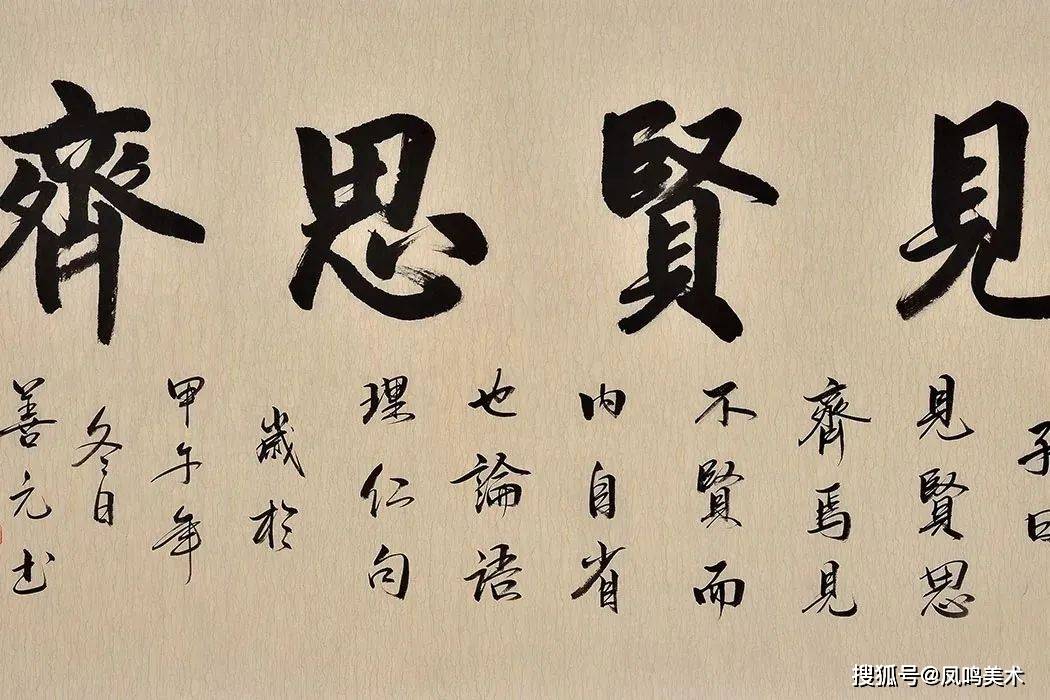 見賢思齊
子曰
見賢思
齊焉見
不賢而
内自省
也論语
理仁句
歲於
甲午年
冬日
善元书
搜狐号@凤鸣美术